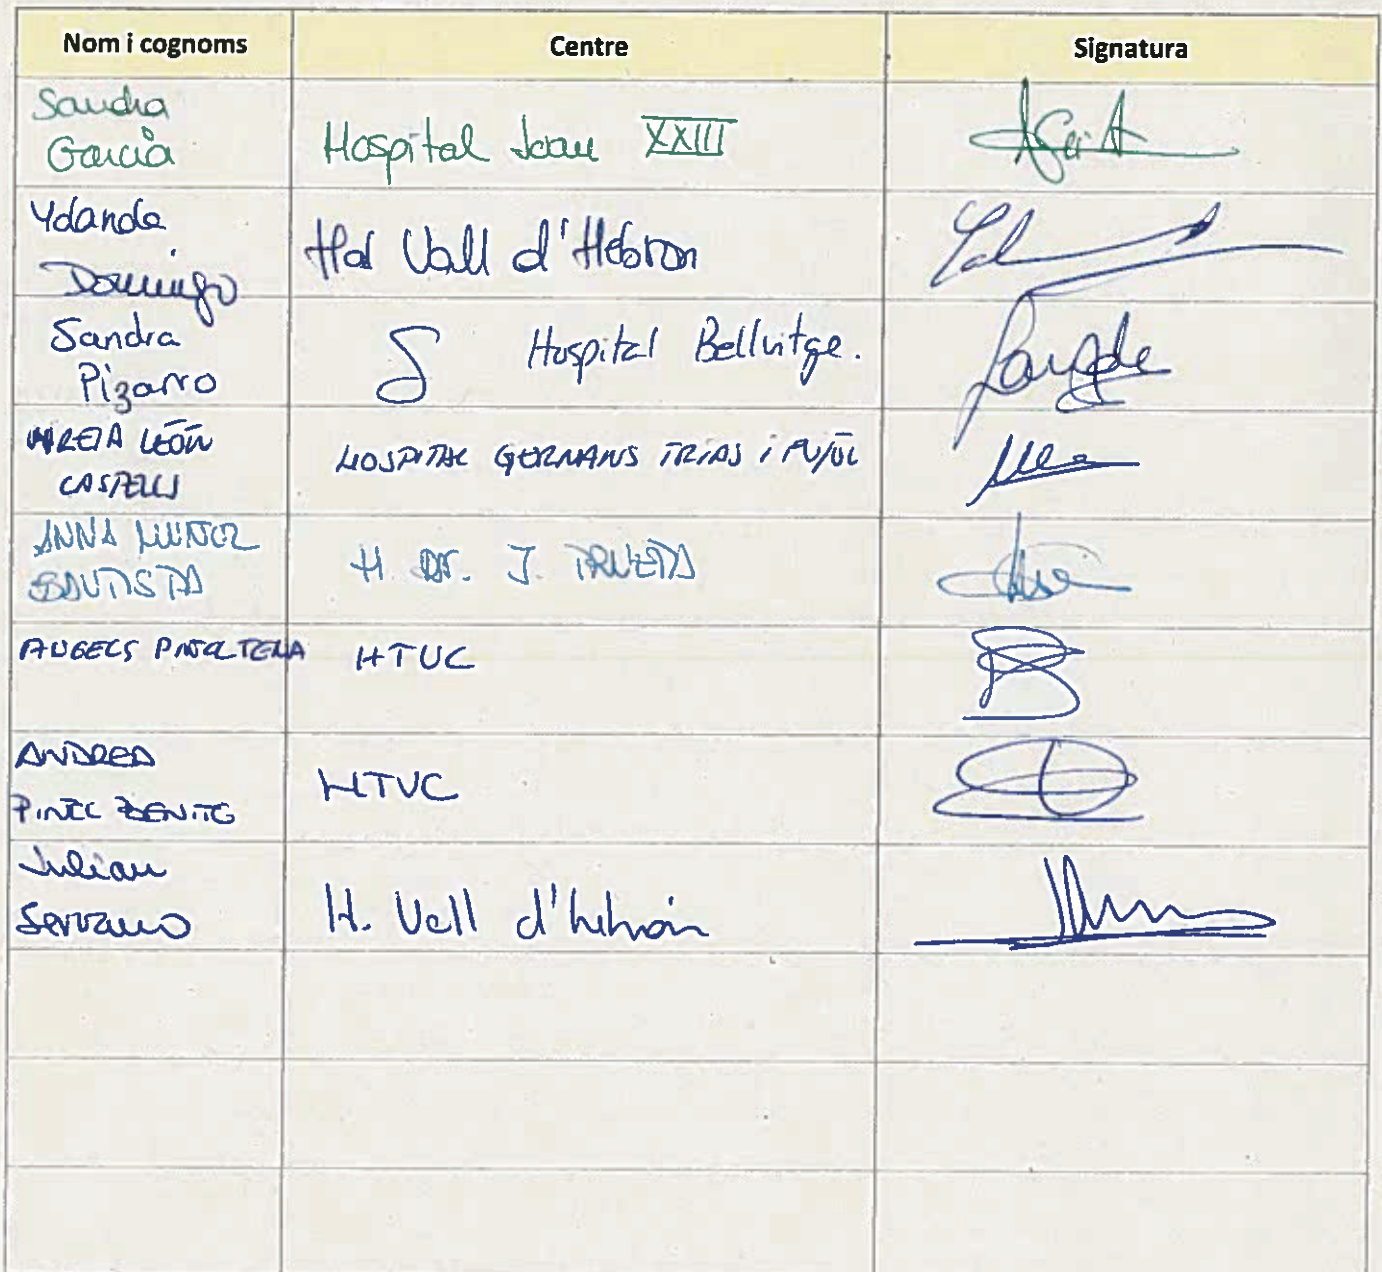 Nom i cognoms Centre Signatura
Sandra
Garcia Hospital Joan XXIII
Yolanda
Domingo Hal Vall d'Hebron
Sandra
Pizarro Hospital Bellvitge.
MIREIA LEÓN
CASTELLS HOSPITAL GERMANS TRIAS i PUJOL
ANNA MUÑOZ
BAUTISTA H. DR. J. TRUETA
ANGELS PINOL TENA HTVC
ANDREA
PINEL BENITO HTVC
Julian
Serrano H. Vall d'hebrón